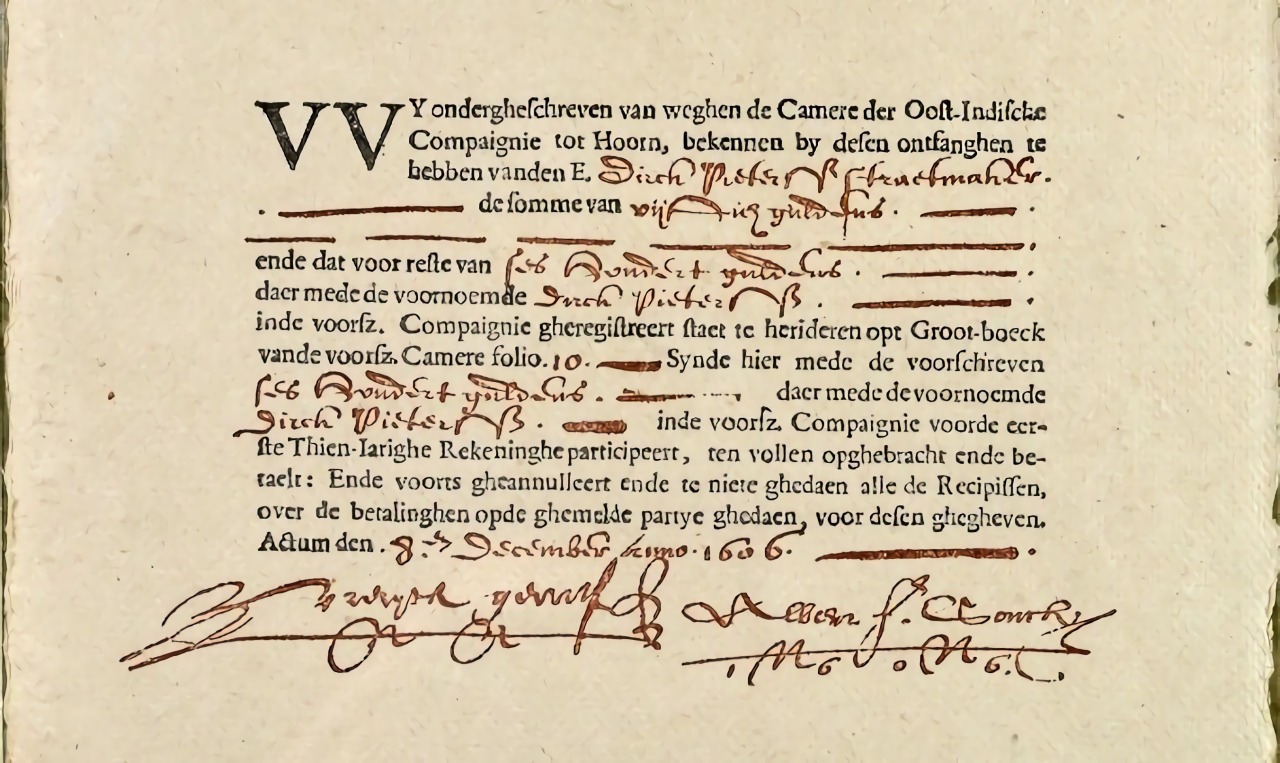 VVY ondergheschreven van weghen de Camere der Oost-Indische
Compaignie tot Hoorn, bekennen by desen ontfanghen te
hebben vanden E. Dirck Pieterss Straetmaker.
de somme van vijftich guldens.
ende dat voor reste van ses Hondert guldens.
daer mede de voornoemde Dirck Pieterss.
inde voorsz. Compaignie gheregistreert staet te herideren opt Groot-boeck
vande voorsz. Camere folio. 10. Synde hier mede de voorschreven
ses Hondert guldens. daer mede de voornoemde
Dirck Pieterss. inde voorsz. Compaignie voorde eer-
ste Thien-Iarighe Rekeninghe participeert, ten vollen opghebracht ende be-
taelt: Ende voorts gheannulleert ende te niete ghedaen alle de Recipissen,
over de betalinghen opde ghemelde partye ghedaen, voor desen ghegheven.
Actum den. 8.en December Anno. 1606.